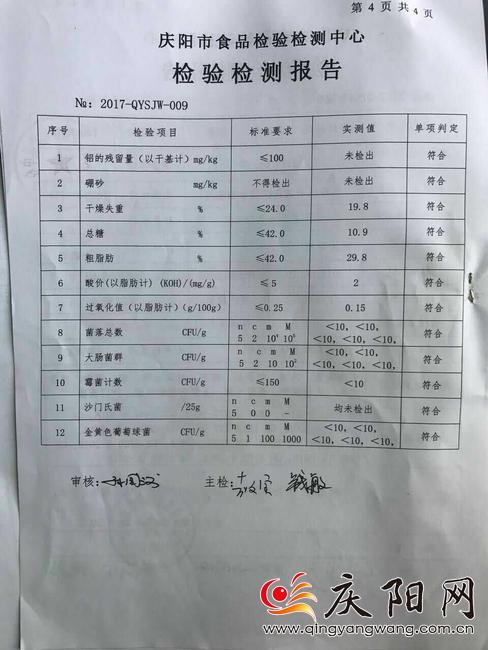 第 4 页 共 4 页
庆阳市食品检验检测中心
检验检测报告
№：2017-QYSJW-009
序号 检验项目 标准要求 实测值 单项判定
1 铝的残留量（以干基计）mg/kg ≤100 未检出 符合
2 硼砂 mg/kg 不得检出 未检出 符合
3 干燥失重 % ≤24.0 19.8 符合
4 总糖 % ≤42.0 10.9 符合
5 粗脂肪 % ≤42.0 29.8 符合
6 酸价(以脂肪计) (KOH)/(mg/g) ≤5 2 符合
7 过氧化值（以脂肪计）(g/100g) ≤0.25 0.15 符合
8 菌落总数 CFU/g n c m M <10，<10， 符合
5 2 10⁴ 10⁵ <10，<10，<10，
9 大肠菌群 CFU/g n c m M <10，<10， 符合
5 2 10 10² <10，<10，<10，
10 霉菌计数 CFU/g ≤150 <10 符合
11 沙门氏菌 /25g n c m M 均未检出 符合
5 0 0 -
12 金黄色葡萄球菌 CFU/g n c m M <10，<10， 符合
5 1 100 1000 <10，<10，<10，
审核： 主检：
庆阳网
www.qingyangwang.com.cn